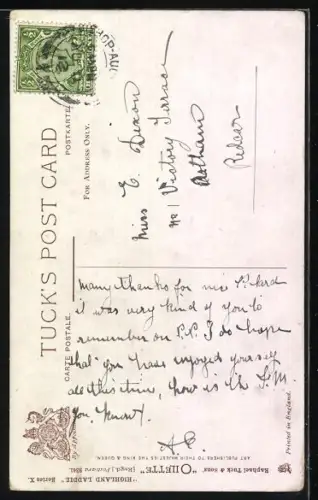 TUCK'S POST CARD
CARTE POSTALE.
POSTKARTE
FOR ADDRESS ONLY.
Miss E. Dixon
No 1 Victory Terrace
Redcar
Many thanks for nice P. card
it was very kind of you to
remember on P.P. I do hope
that you have enjoyed yourself
all this time, how is the S.M.
you know?
A.C.
Raphael Tuck & Sons' "OILETTE" [Regd.] Postcard
"HIGHLAND LADDIE" Series
ART PUBLISHERS TO THEIR MAJESTIES THE KING & QUEEN.
Printed in England.